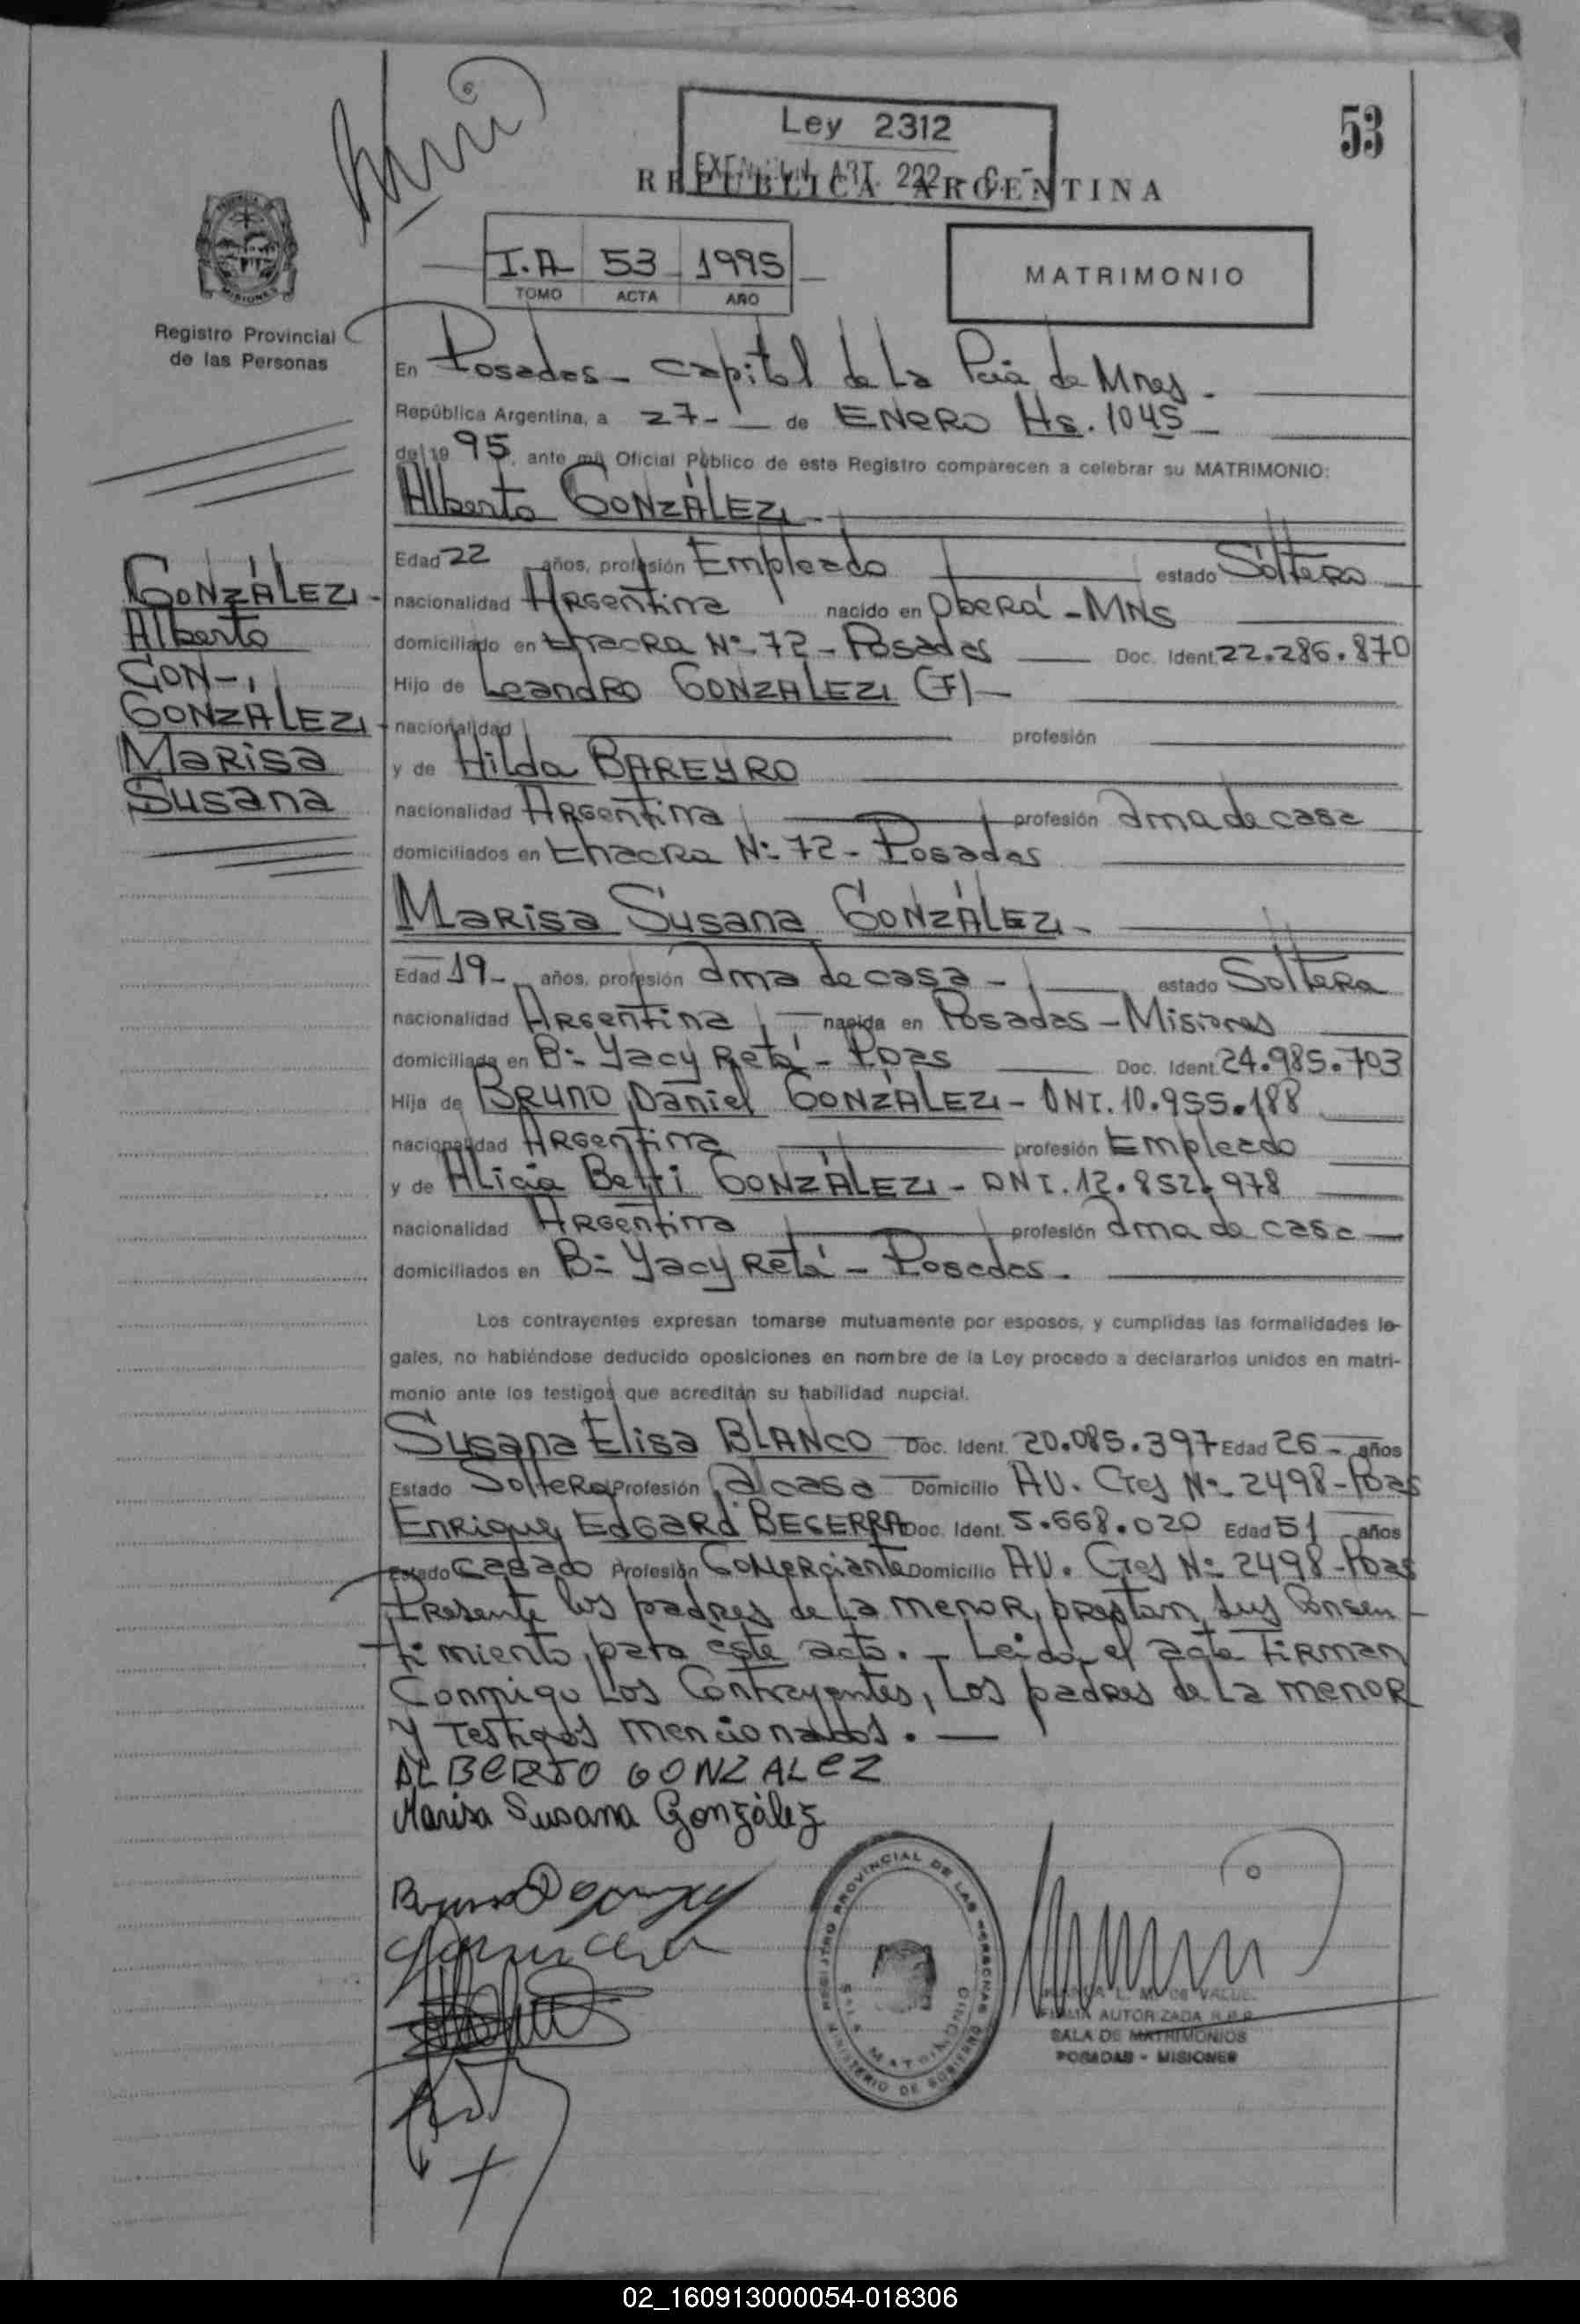 53
Ley 2312
EXENCION ART. 222 - C.
REPUBLICA ARGENTINA
I.A 53 1995
TOMO ACTA AÑO
MATRIMONIO
MISIONES
Registro Provincial
de las Personas
En Posadas - Capital de la Pcia de Mnes.
República Argentina, a 27 - de ENERO Hs. 1045
del 19 95, ante mí Oficial Público de este Registro comparecen a celebrar su MATRIMONIO:
Alberto GONZÁLEZ -
Edad 22 años, profesión Empleado estado Soltero
nacionalidad Argentina nacido en Oberá - MNS
domiciliado en Chacra Nº 72 - Posadas Doc. Ident. 22.286.870
Hijo de Leandro GONZALEZ (F) -
nacionalidad profesión
y de Hilda BAREYRO
nacionalidad Argentina profesión Ama de casa
domiciliados en Chacra Nº 72 - Posadas
GONZÁLEZ -
Alberto
CON -
GONZALEZ -
Marisa
Susana
Marisa Susana GONZÁLEZ -
Edad 19 - años, profesión Ama de casa - estado Soltera
nacionalidad Argentina nacida en Posadas - Misiones
domiciliada en Bº Yacyretá - Pdas Doc. Ident. 24.985.703
Hija de BRUNO Daniel GONZÁLEZ - DNI. 10.955.188
nacionalidad Argentina profesión Empleado
y de Alicia Betti GONZÁLEZ - DNI. 12.852.978
nacionalidad Argentina profesión Ama de casa
domiciliados en Bº Yacyretá - Posadas.
Los contrayentes expresan tomarse mutuamente por esposos, y cumplidas las formalidades le-
gales, no habiéndose deducido oposiciones en nombre de la Ley procedo a declararlos unidos en matri-
monio ante los testigos que acreditan su habilidad nupcial.
Susana Elisa BLANCO Doc. Ident. 20.085.397 Edad 26 - años
Estado Soltera Profesión A/casa Domicilio AV. Ctes Nº 2498 - Pdas
Enrique Edgard BECERRA Doc. Ident. 5.668.020 Edad 51 años
Estado casado Profesión Comerciante Domicilio AV. Ctes Nº 2498 - Pdas
Presente los padres de la menor, prestan sus Consen-
timiento para éste acto. - Leida el acta Firman
Conmigo Los Contrayentes, Los padres de La menor
y Testigos mencionados. -
ALBERTO GONZALEZ
Marisa Susana González
REGISTRO PROVINCIAL DE LAS PERSONAS
MINISTERIO DE GOBIERNO
L. M. DE
FIRMA AUTORIZADA R.P.P.
SALA DE MATRIMONIOS
POSADAS - MISIONES
02_160913000054-018306